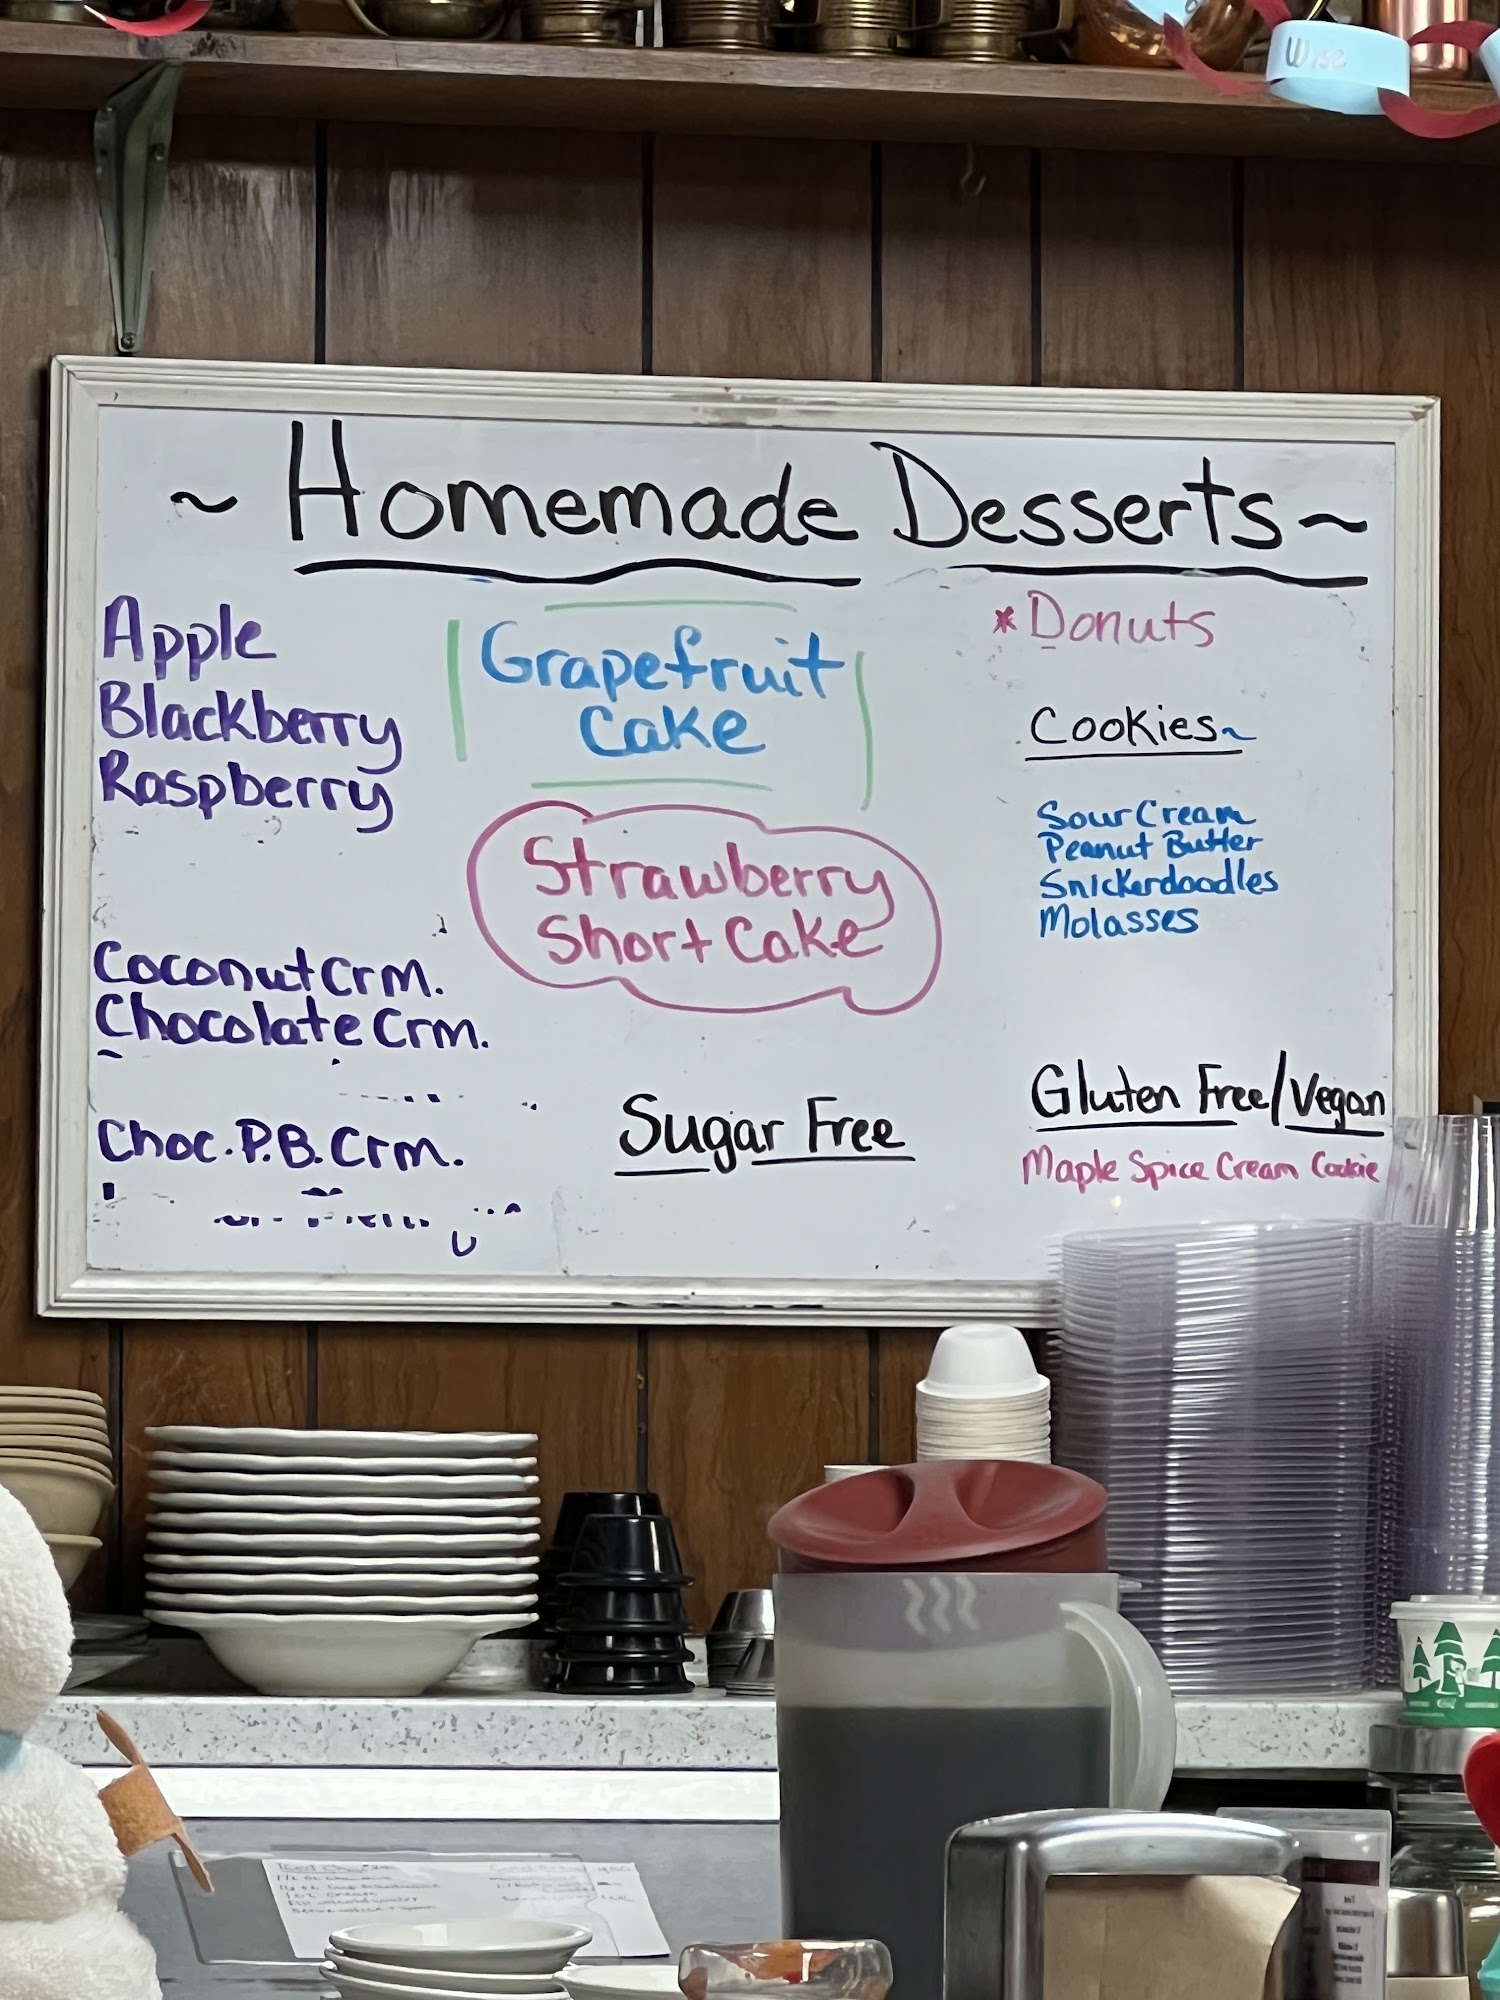 Wise
~ Homemade Desserts ~
Apple
Blackberry
Raspberry
Coconut Crm.
Chocolate Crm.
Choc. P.B. Crm.
Grapefruit
Cake
Strawberry
Short Cake
Sugar Free
* Donuts
Cookies~
Sour Cream
Peanut Butter
Snickerdoodles
Molasses
Gluten Free/Vegan
Maple Spice Cream Cookie